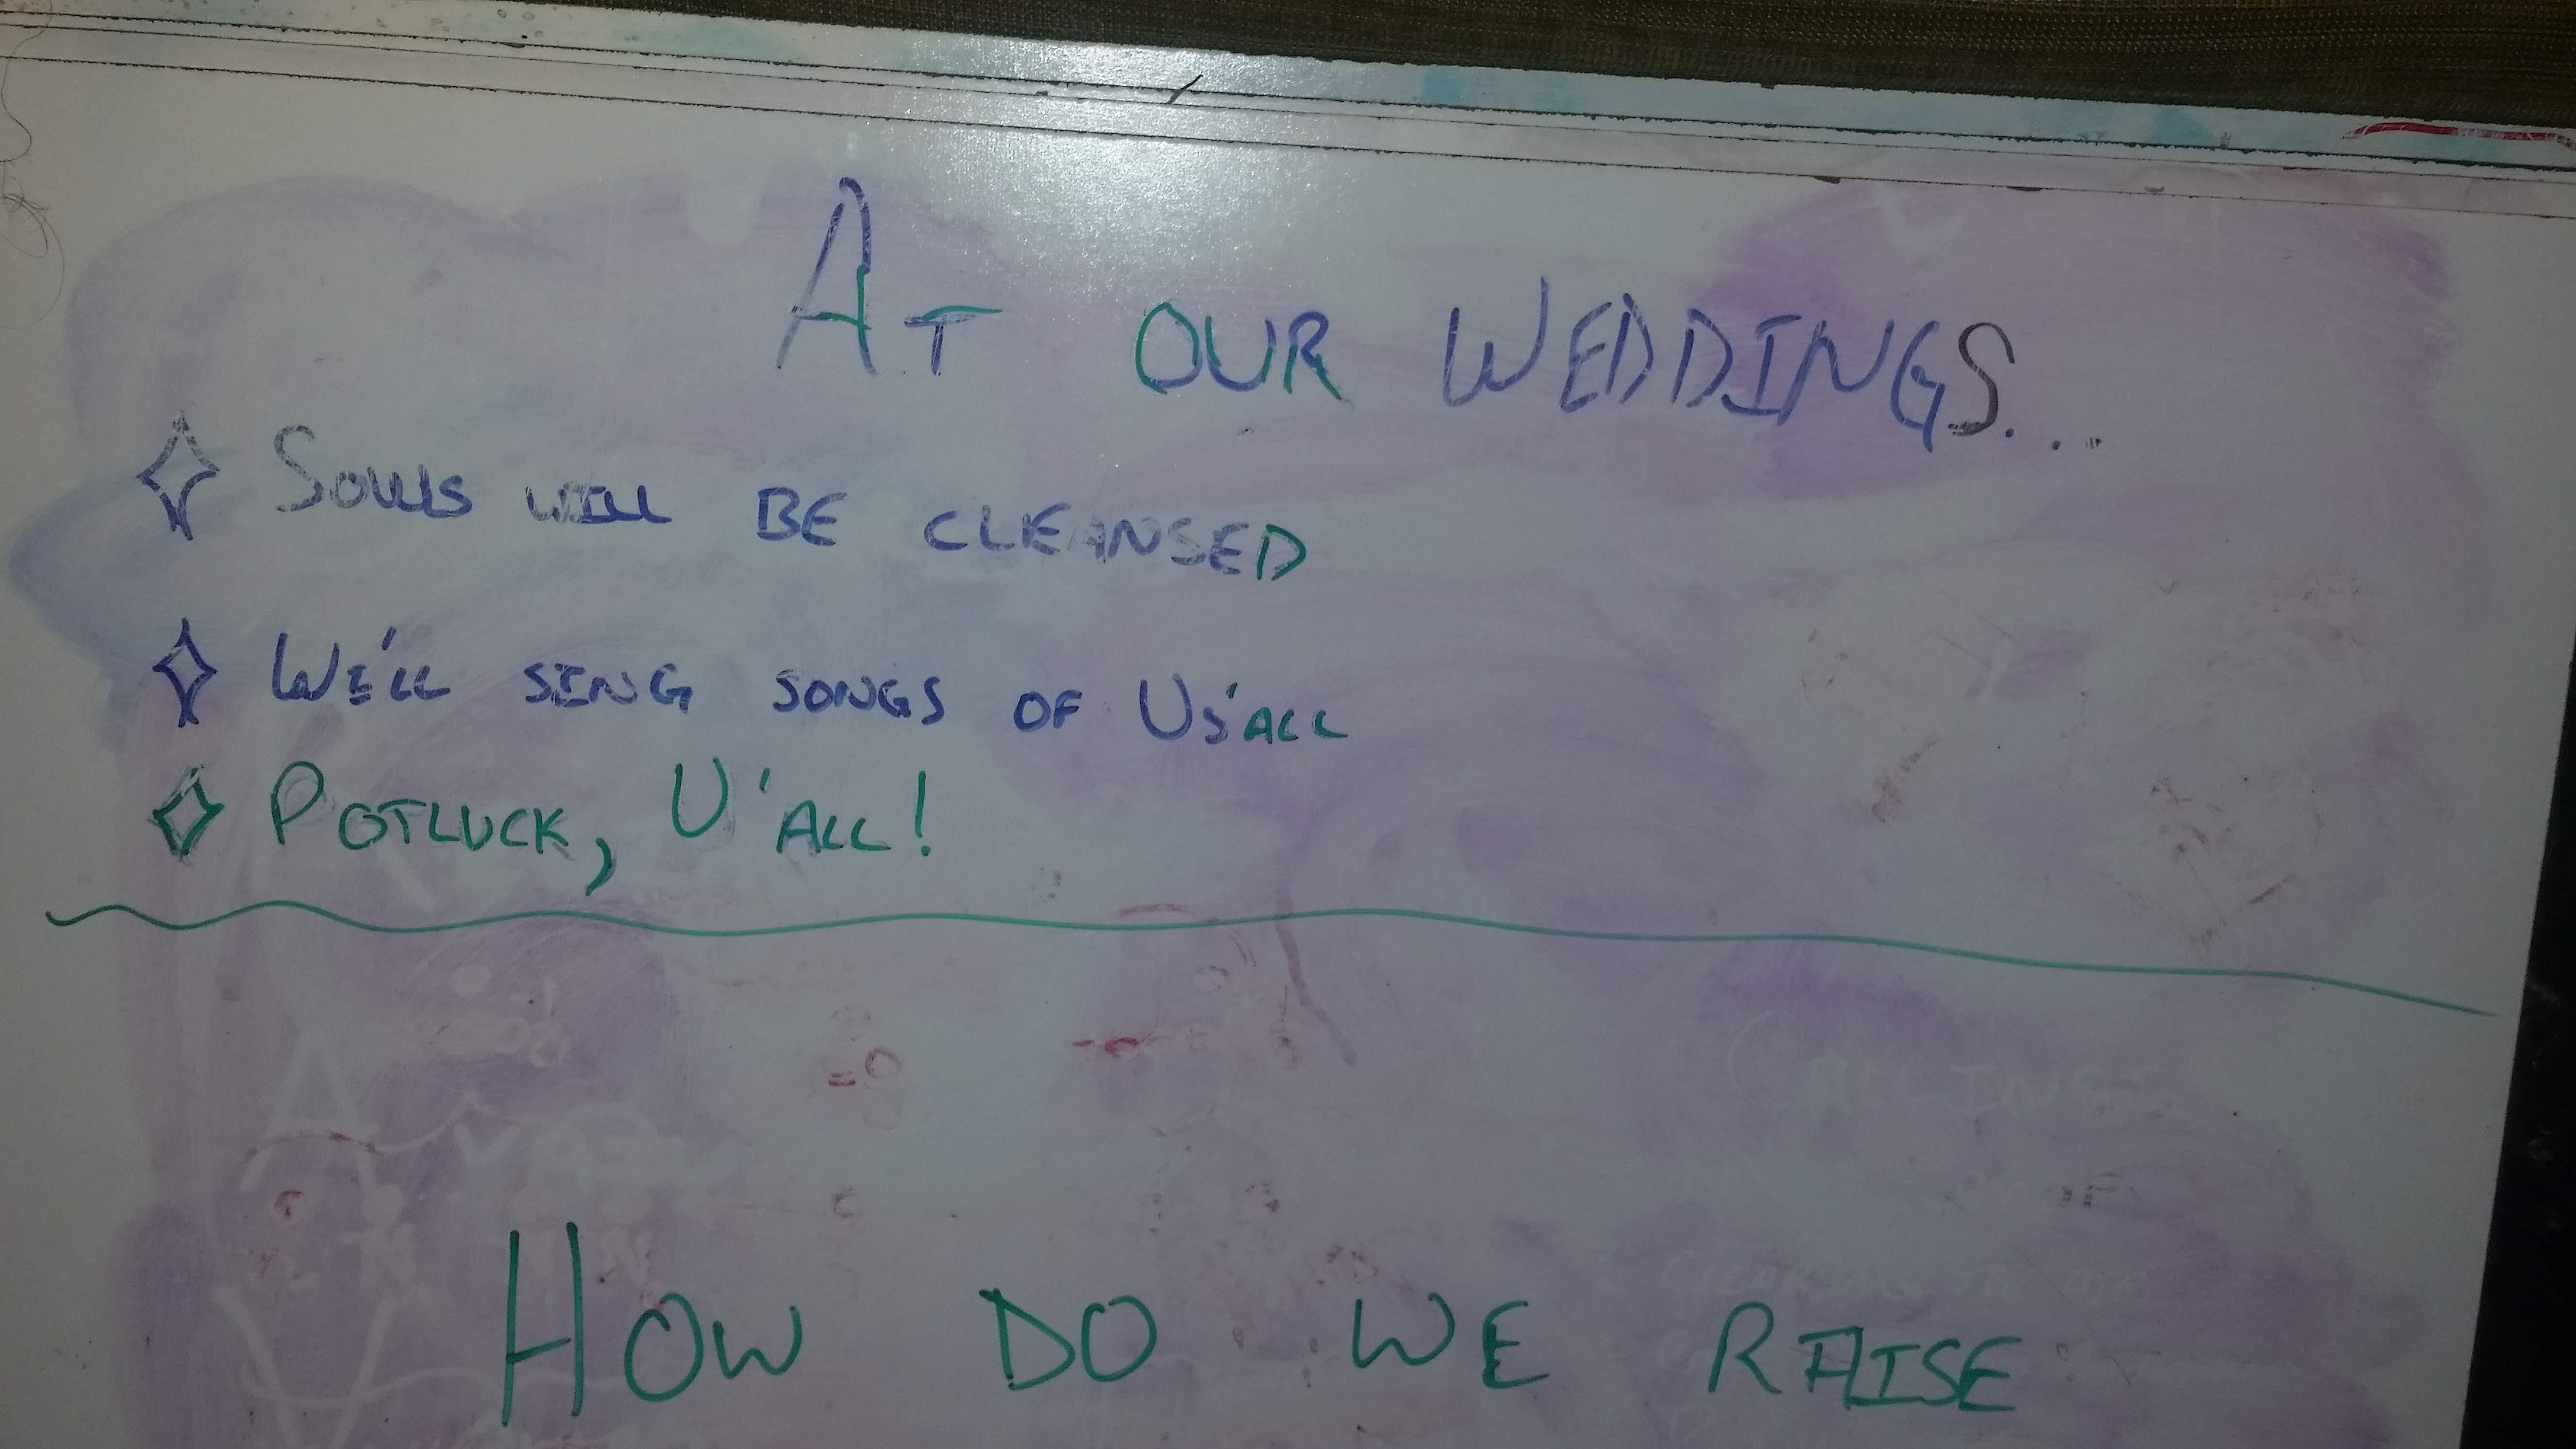 At our Weddings...
Souls will be cleansed
We'll sing songs of Us'all
Potluck, U'all!
How do we raise